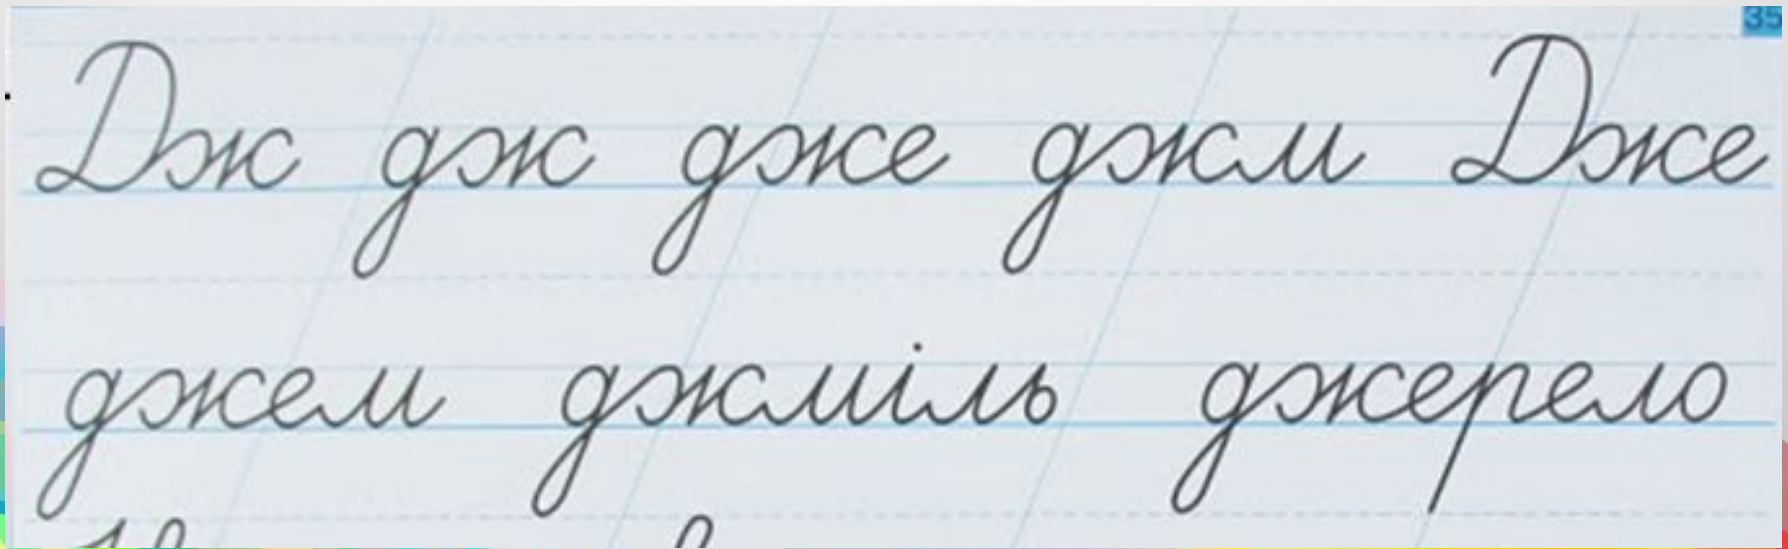 35
Дж дж дже джм Дже
джем джміль джерело